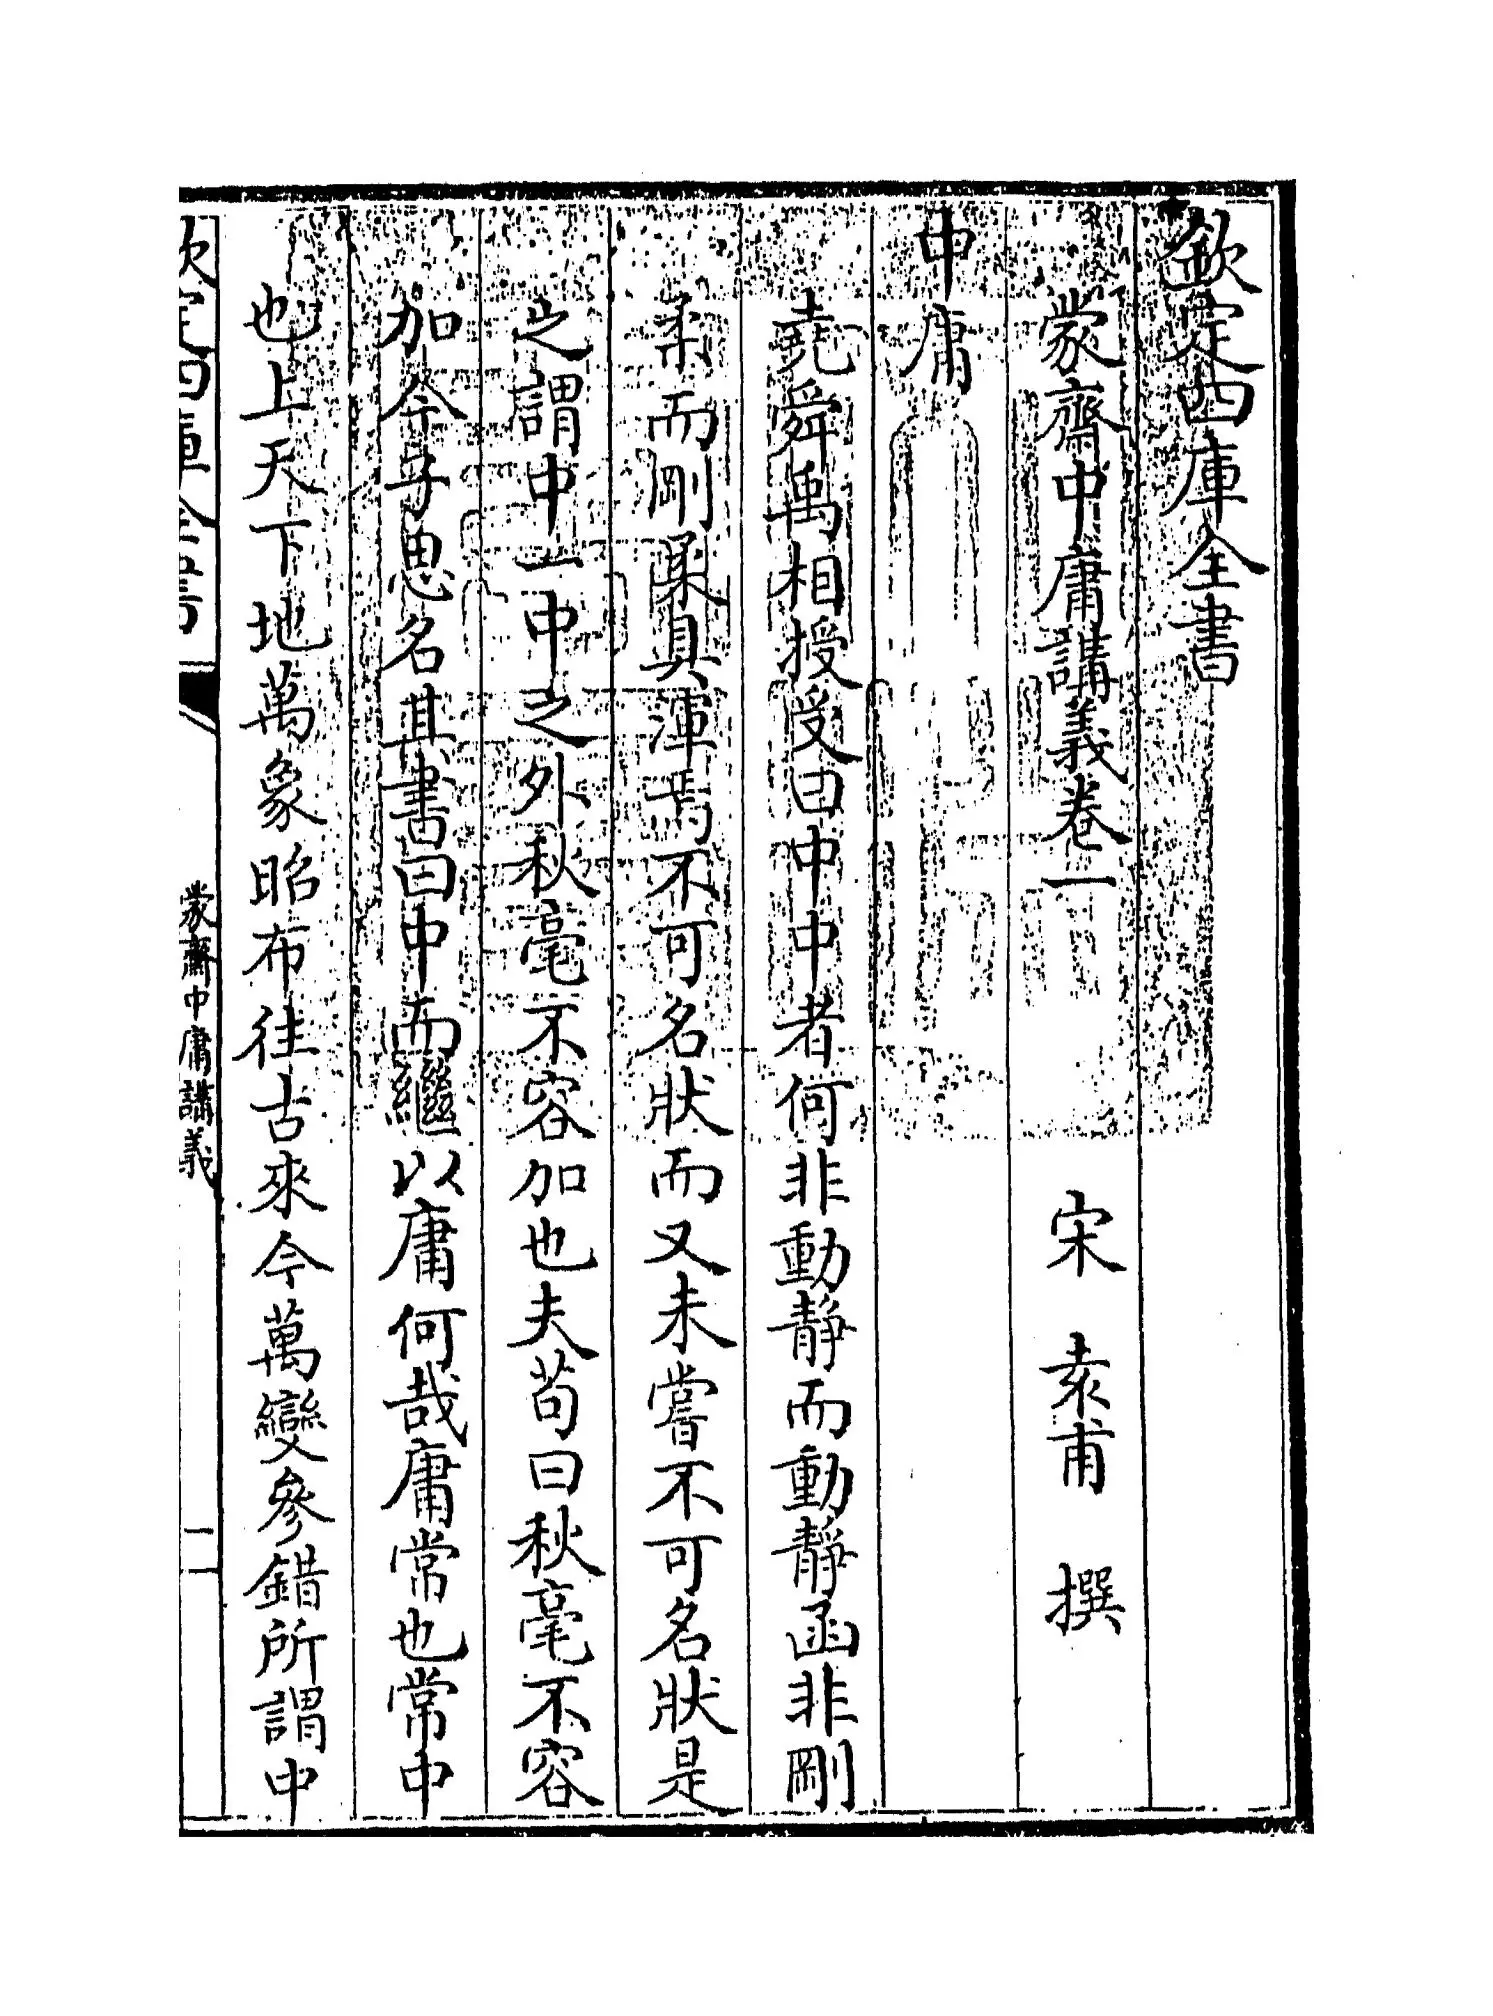 欽定四庫全書
蒙齋中庸講義卷一 宋 袁甫 撰
中庸
堯舜禹相授受曰中中者何非動靜而動靜函非剛
柔而剛柔具渾焉不可名狀而又未嘗不可名狀是
之謂中一中之外秋毫不容加也夫茍曰秋毫不容
加今子思名其書曰中而繼以庸何哉庸常也常中
也上天下地萬象昭布往古來今萬變參錯所謂中
欽定四庫全書
蒙齋中庸講義
一